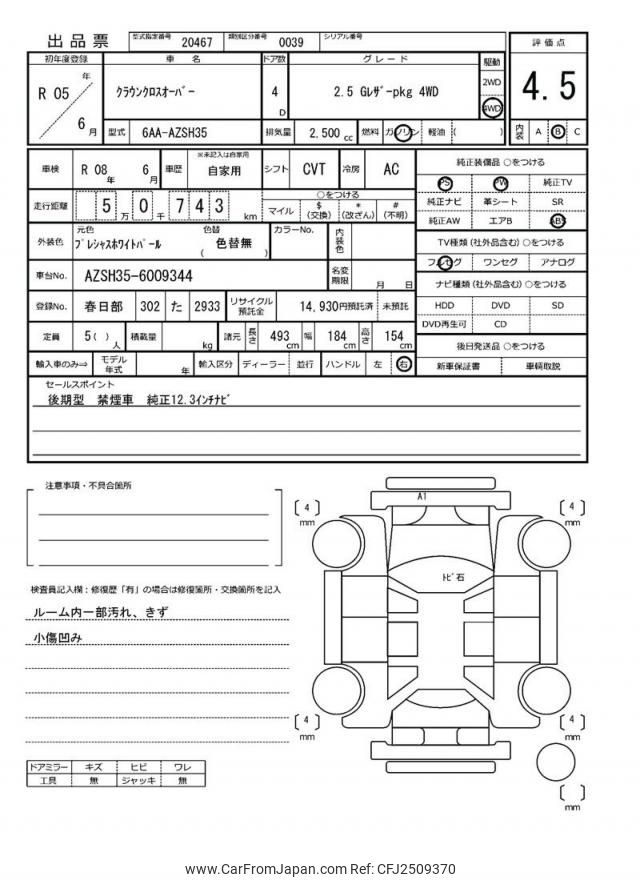 出品票 型式指定番号 20467 類別区分番号 0039 シリアル番号
評価点
4.5
内装 A B C
初年度登録 車名 ドア数 グレード 駆動
R 05 年 6 月
クラウンクロスオーバー 4 D 2.5 Gレザーpkg 4WD
2WD
4WD
型式 6AA-AZSH35 排気量 2,500 cc 燃料 ガソリン 軽油 ( )
車検 R 08 年 6 月 車歴 ※未記入は自家用 自家用 シフト CVT 冷房 AC
走行距離 5 万 0 千 7 4 3 km
○をつける
マイル $(交換) *(改ざん) #(不明)
外装色 元色 プレシャスホワイトパール 色替 色替無 ( )
カラーNo. 内装色
車台No. AZSH35-6009344 名変期限 月 日
登録No. 春日部 302 た 2933 リサイクル預託金 14,930円預託済 未預託
定員 5( )人 積載量 kg 諸元 長さ 493 cm 幅 184 cm 高さ 154 cm
輸入車のみ⇒ モデル年式 年 輸入区分 ディーラー 並行 ハンドル 左 右
純正装備品 ○をつける
PS PW 純正TV
純正ナビ 革シート SR
純正AW エアB ABS
TV種類 (社外品含む) ○をつける
フルセグ ワンセグ アナログ
ナビ種類 (社外品含む) ○をつける
HDD DVD SD
DVD再生可 CD
後日発送品 ○をつける
新車保証書 車輌取説
セールスポイント
後期型 禁煙車 純正12.3インチナビ
注意事項・不具合箇所
検査員記入欄：修復歴「有」の場合は修復箇所・交換箇所を記入
ルーム内一部汚れ、きず
小傷凹み
ドアミラー キズ ヒビ ワレ
工具 無 ジャッキ 無
A1
トビ石
[ 4 ] mm
[ 4 ] mm
[ 4 ] mm
[ 4 ] mm
[ ] mm
www.CarFromJapan.com Ref: CFJ2509370